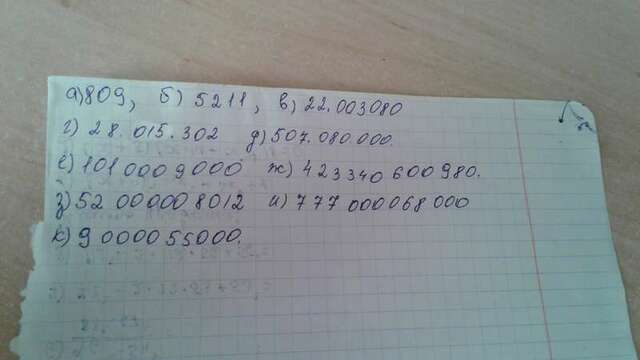 а) 809, б) 5211, в) 22.003080
г) 28.015.302 д) 507.080.000.
е) 101 000 9000 ж) 423340 600980.
з) 52 00000 8012 и) 777 000068 000
к) 9 0000 55000.